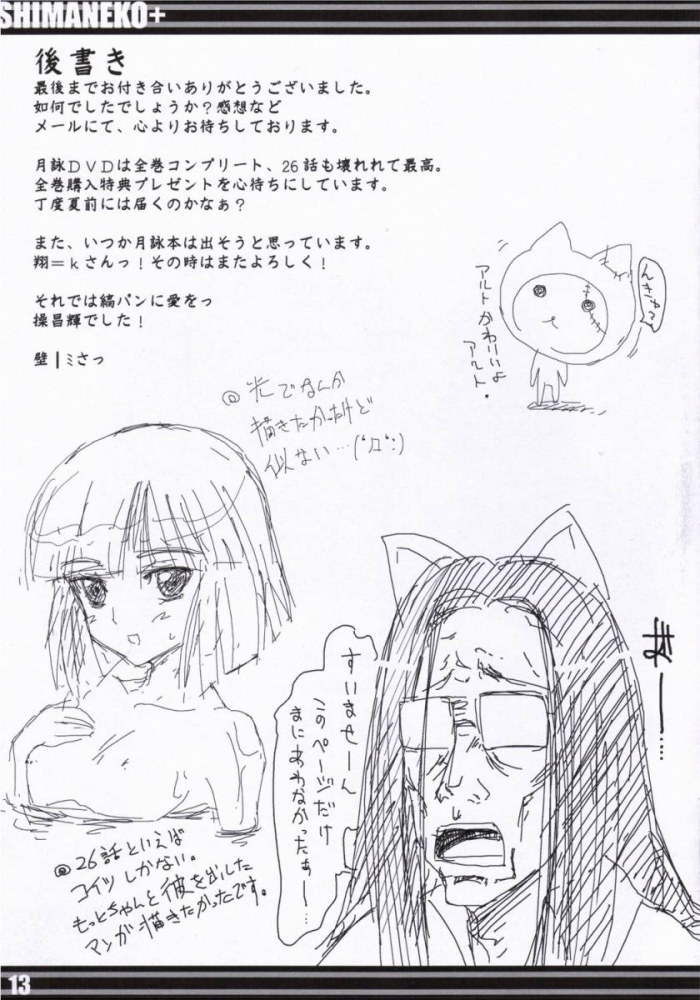 SHIMANEKO+
後書き
最後までお付き合いありがとうございました。
如何でしたでしょうか？感想など
メールにて、心よりお待ちしております。
月詠ＤＶＤは全巻コンプリート、26話も壊れれて最高。
全巻購入特典プレゼントを心待ちにしています。
丁度夏前には届くのかなぁ？
また、いつか月詠本は出そうと思っています。
翔＝ｋさんっ！その時はまたよろしく！
それでは縞パンに愛をっ
操昌輝でした！
壁┃ﾐさっ
んきゅ?
アルトかわーいいよ
アルト。
@光でなんか
描きたかったけど
似ない…('Д`;)
すいませーん
このページだけ
まにあわなかったぁー…
ま゛ー……
@26話といえば
コイツしかない。
もっとちゃんと彼を出した
マンガ描きたかったです。
13